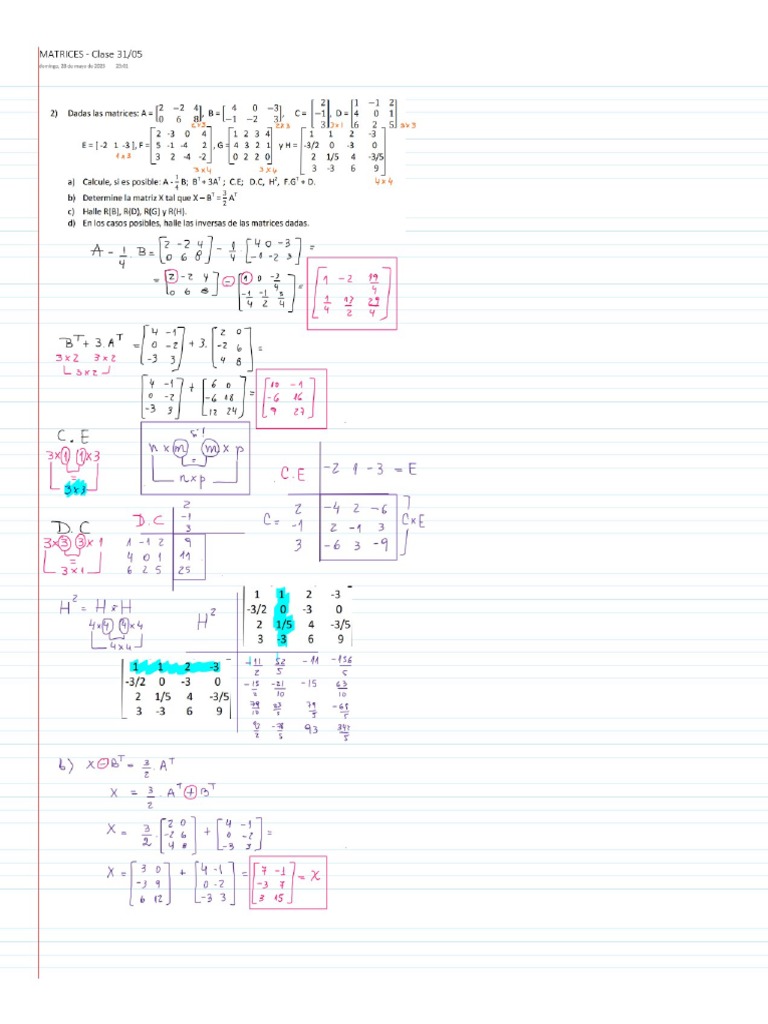 MATRICES - Clase 31/05
2) Dadas las matrices: A = [2 −2 4; 0 6 8], B = [4 0 −3; −1 −2 3], C = [2; −1; 3], D = [1 −1 2; 4 0 1; 6 2 5]
2x3 2x3 3x1 3x3
E = [ -2 1 -3 ], F = [2 -3 0 4; 5 -1 -4 2; 3 2 -4 -2], G = [1 2 3 4; 4 3 2 1; 0 2 2 0] y H = [1 1 2 -3; -3/2 0 -3 0; 2 1/5 4 -3/5; 3 -3 6 9]
1x3 3x4 3x4 4x4
a) Calcule, si es posible: A - 1/4 B; Bᵀ+ 3Aᵀ ; C.E; D.C, H², F.Gᵀ + D.
b) Determine la matriz X tal que X – Bᵀ = 3/2 Aᵀ
c) Halle R(B), R(D), R(G) y R(H).
d) En los casos posibles, halle las inversas de las matrices dadas.
A - 1/4 . B = [2 -2 4; 0 6 8] - 1/4 . [4 0 -3; -1 -2 3] =
= [2 -2 4; 0 6 8] - [1 0 -3/4; -1/4 -1/2 3/4] = [1 -2 19/4; 1/4 13/2 29/4]
Bᵀ + 3. Aᵀ = [4 -1; 0 -2; -3 3] + 3. [2 0; -2 6; 4 8] =
3x2 3x2
3x2
[4 -1; 0 -2; -3 3] + [6 0; -6 18; 12 24] = [10 -1; -6 16; 9 27]
C . E
3x1 1x3
=
3x3
si
n x m m x p
=
n x p
C.E
-2 1 -3 = E
C = 2 -4 2 -6
-1 2 -1 3
3 -6 3 -9
CxE
D.C
3x3 3x1
=
3x1
D.C
2
-1
3
1 -1 2 9
4 0 1 11
6 2 5 25
H² = H x H
4x4 4x4
=
4x4
H²
1 1 2 -3
-3/2 0 -3 0
2 1/5 4 -3/5
3 -3 6 9
1 1 2 -3
-3/2 0 -3 0
2 1/5 4 -3/5
3 -3 6 9
52/5 -11 -156/5
-15/2 -21/10 -15 63/10
79/5 -69/5
-78/5 93 342/5
b) X - Bᵀ = 3/2 . Aᵀ
X = 3/2 . Aᵀ + Bᵀ
X = 3/2 . [2 0; -2 6; 4 8] + [4 -1; 0 -2; -3 3] =
X = [3 0; -3 9; 6 12] + [4 -1; 0 -2; -3 3] = [7 -1; -3 7; 3 15] = X